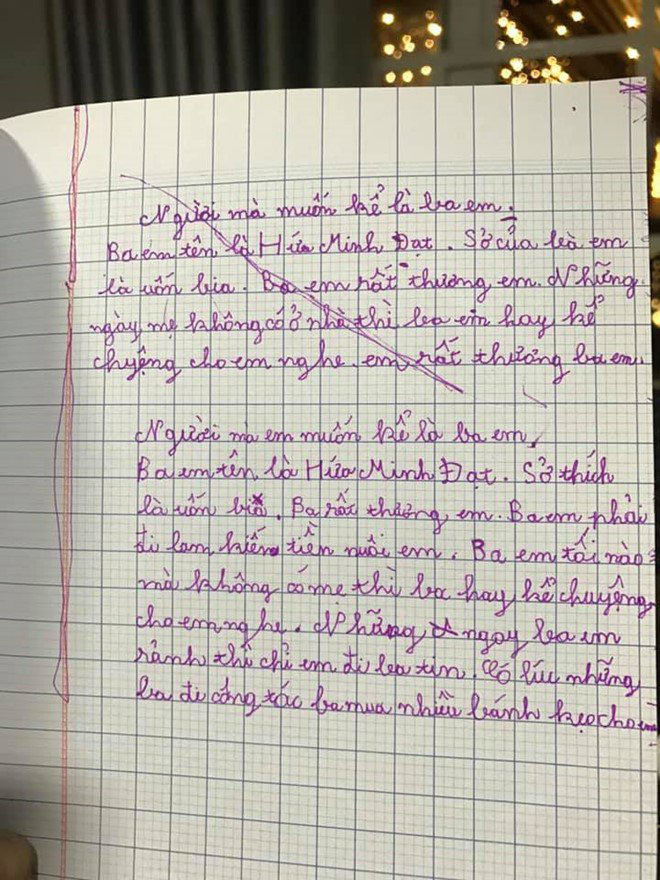 Người mà muốn kể là ba em.
Ba em tên là Hứa Minh Đạt. Sở của là em
là uốn bia. Ba em rất thương em. Những
ngày mẹ không có ở nhà thì ba em hay kể
chuyệng cho em nghe. em rất thương ba em.
Người mà em muốn kể là ba em.
Ba em tên là Hứa Minh Đạt. Sở thích
là uốn bia. Ba rất thương em. Ba em phải
đi lam kiếm tiền nuôi em. Ba em tối nào
mà không có mẹ thì ba hay kể chuyệng
cho em nghe. Những ngay ba em
rảnh thì chỉ em đi ba tin. Có lúc những
ba đi công tác ba mua nhiều bánh kẹo cho em